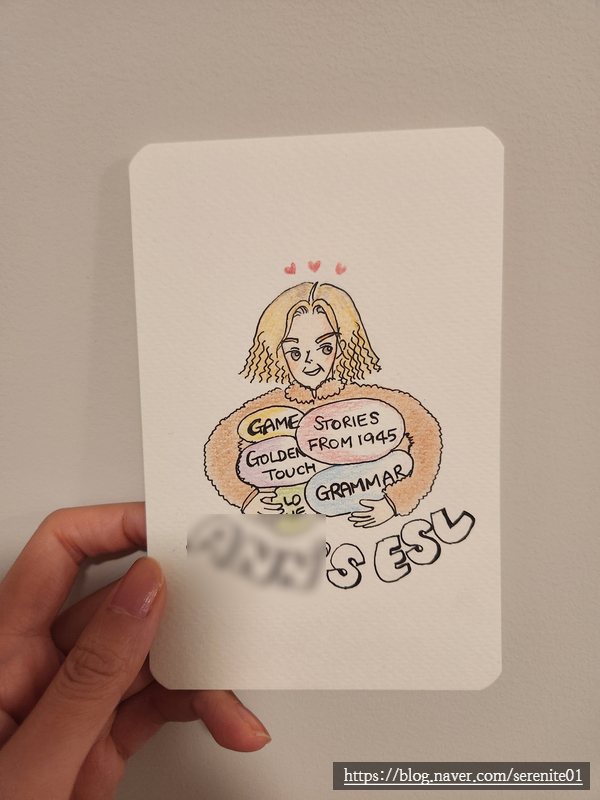 GAME
STORIES
FROM 1945
GOLDEN
TOUCH
GRAMMAR
LO
'S ESL
https://blog.naver.com/serenite01